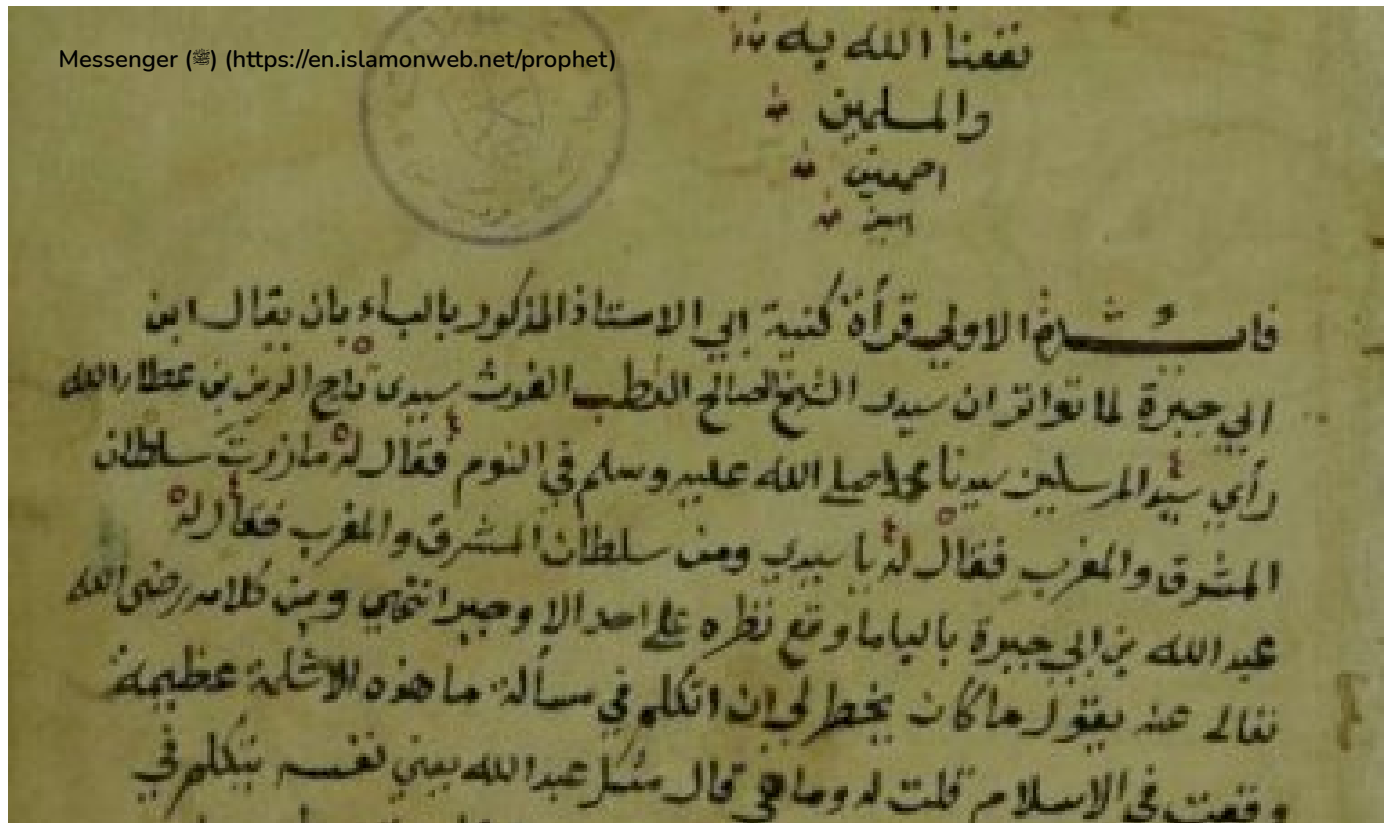 نفعنا الله به
Messenger (ﷺ) (https://en.islamonweb.net/prophet)
والمسلمين
اجمعين
امين
الاولي قرأة كنية ابي الاستاذ المذكور بالباء بان يقال ابن
ابي جبرة لما تواتر ان سيدي الشيخ الصالح القطب الغوث سيدي تاج الدين بن عطاء الله
رأي سيد المرسلين سيدنا محمدا صلي الله عليه وسلم في النوم فقال له ما زرت سلطان
المشرق والمغرب فقال له يا سيدي ومن سلطان المشرق والمغرب فقال له
عبد الله بن ابي جبرة باليا ما وقع نظره علي احد الا وجبر انتهي ومن كلامه رضي الله
تعالي عنه يقول ما كان يخطر لي ان اتكلم في مسألة ما هذه الا عظيمة
وقعت في الاسلام قلت له وما هي قال مثل عبد الله يعني نفسه يتكلم في